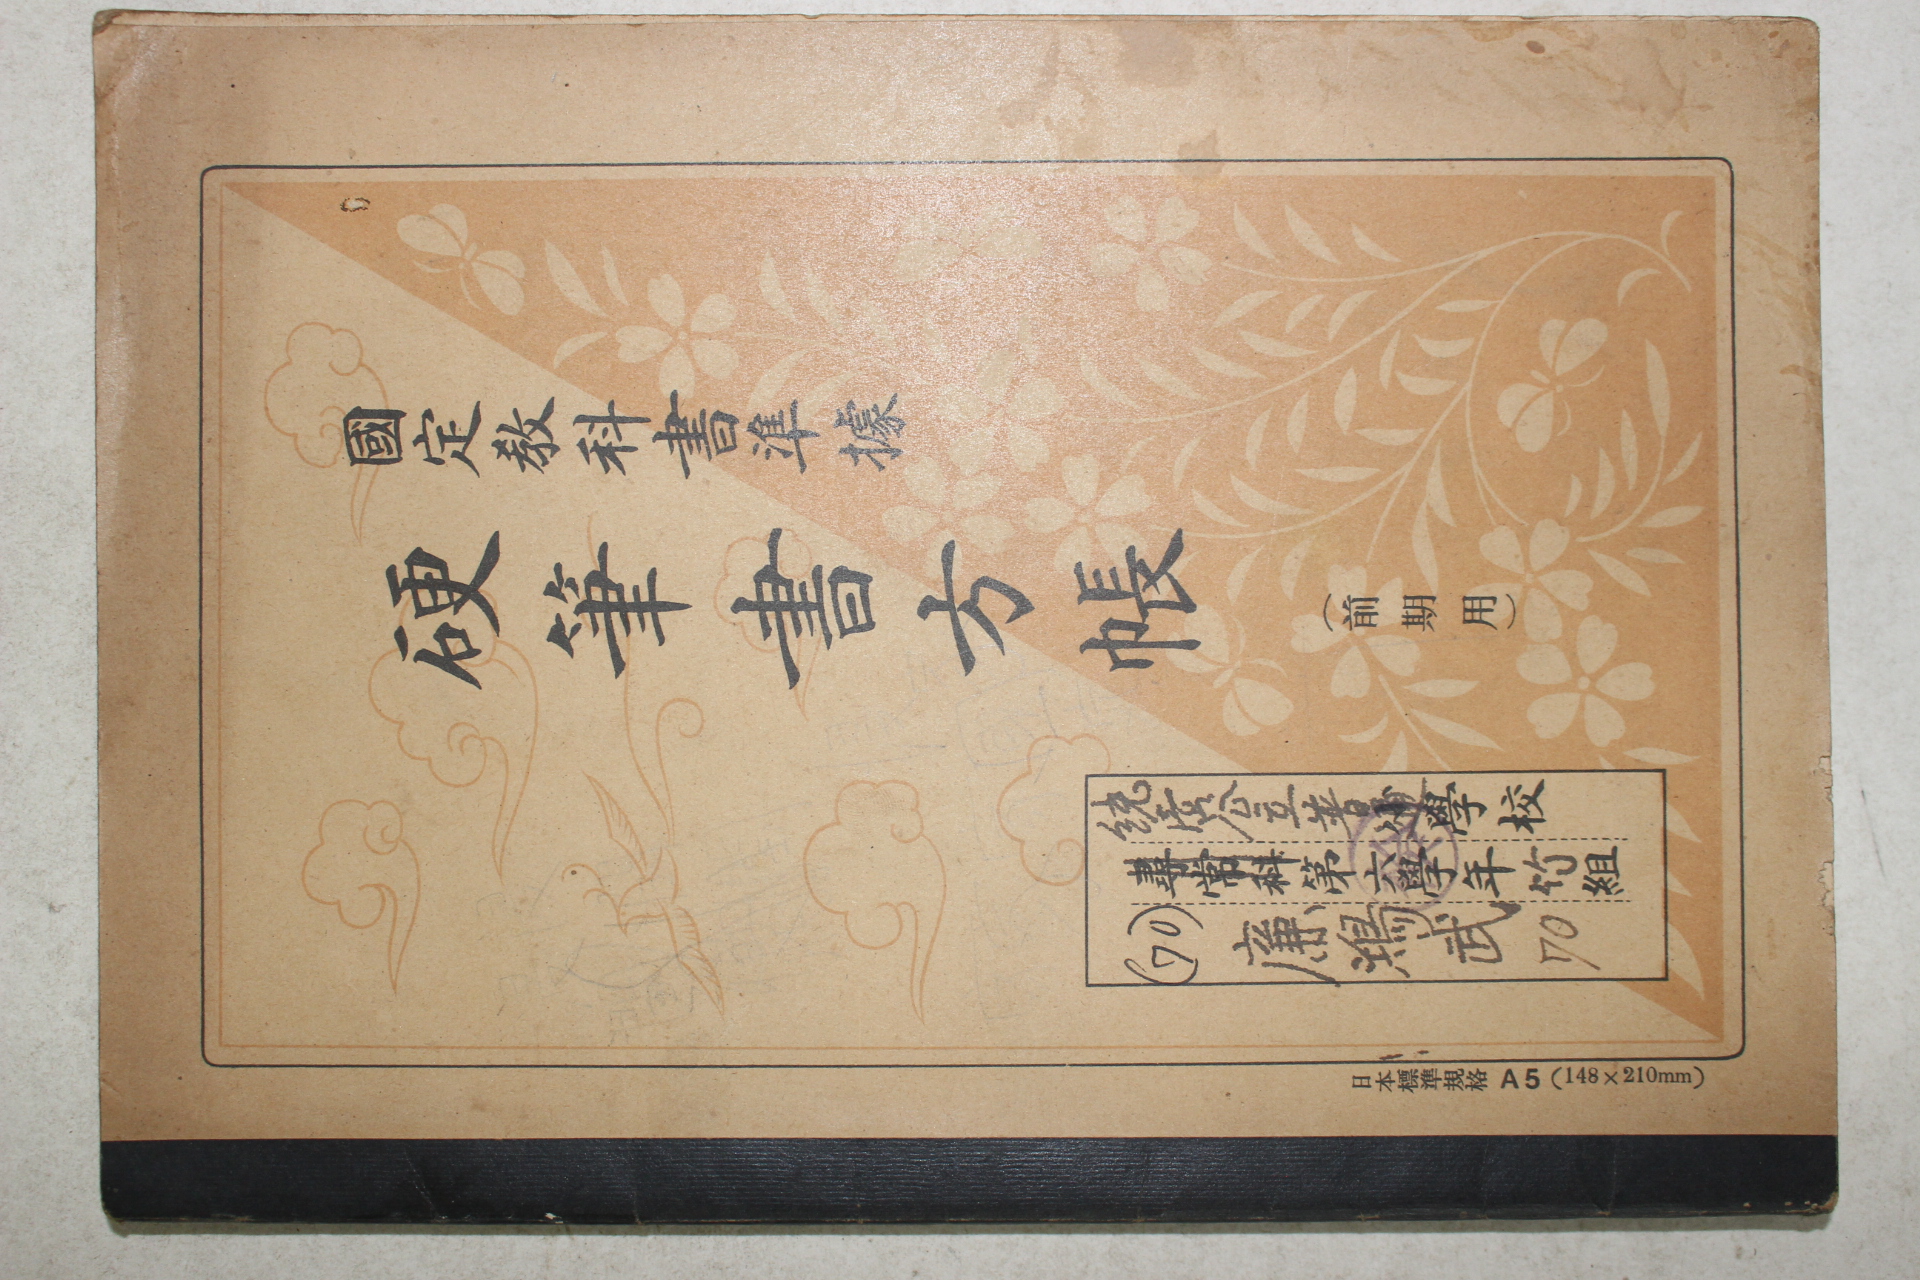 國定教科書準據
硬筆書方帳
(前期用)
統營公立普通學校
尋常科第六學年竹組
(70) 武 70
日本標準規格 A5 (148×210mm)